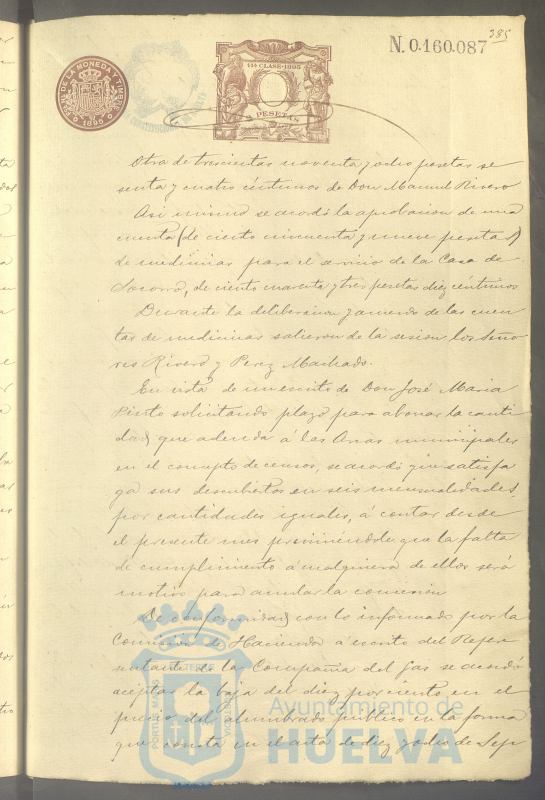 385
N. 0.160.087
FÁB. NAL. DE LA MONEDA Y TIMBRE
1895
11ª CLASE - 1895
PESETAS
Otra de trescientas noventa y ocho pesetas se
senta y cuatro céntimos de Don Manuel Rivero
Asi mismo se acordó la aprobacion de una
cuenta (de ciento cincuenta y nueve pesetas)
de medicinas para el servicio de la Casa de
Socorro, de ciento cuarenta y tres pesetas diez céntimos
Durante la deliberacion y acuerdo de las cuen
tas de medicinas salieron de la sesion los Seño
res Rivero y Perez Machado.
En vista de un escrito de Don José Maria
Prieto solicitando plazo para abonar la canti
dad que adeuda á las Arcas municipales
en el concepto de censos, se acordó que satisfa
ga sus descubiertos en seis mensualidades,
por cantidades iguales, á contar desde
el presente mes previniéndole que la falta
de cumplimiento á cualquiera de ellos será
motivo para anular la concesion
De conformidad con lo informado por la
Comision de Hacienda á escrito del Repre
sentante de la Compañia del Gas se acordó
aceptar la baja del diez por ciento en el
precio del alumbrado público en la forma
que consta en el acta de diez y ocho de Sep
Ayuntamiento de
HUELVA
PORTUS MARIS ET TERRAE CUSTODIA